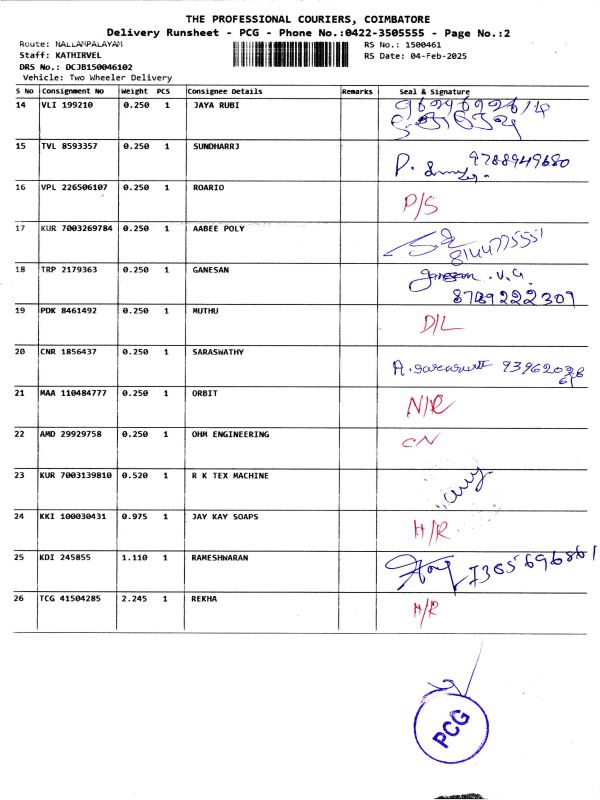 THE PROFESSIONAL COURIERS, COIMBATORE
Delivery Runsheet - PCG - Phone No.:0422-3505555 - Page No.:2
Route: NALLAMPALAYAM RS No.: 1500461
Staff: KATHIRVEL RS Date: 04-Feb-2025
DRS No.: DCJB150046102
Vehicle: Two Wheeler Delivery
S No Consignment No Weight PCS Consignee Details Remarks Seal & Signature
14 VLI 199210 0.250 1 JAYA RUBI
15 TVL 8593357 0.250 1 SUNDHARRJ
P. 9788949680
16 VPL 226506107 0.250 1 ROARIO P/S
17 KUR 7003269784 0.250 1 AABEE POLY
8144775551
18 TRP 2179363 0.250 1 GANESAN Ganesan .V.G.
19 PDK 8461492 0.250 1 MUTHU D/L
20 CNR 1856437 0.250 1 SARASWATHY
21 MAA 110484777 0.250 1 ORBIT N/R
22 AMD 29929758 0.250 1 OHM ENGINEERING CN
23 KUR 7003139810 0.520 1 R K TEX MACHINE
24 KKI 100030431 0.975 1 JAY KAY SOAPS H/R
25 KDI 245855 1.110 1 RAMESHWARAN
26 TCG 41504285 2.245 1 REKHA H/R
PCG